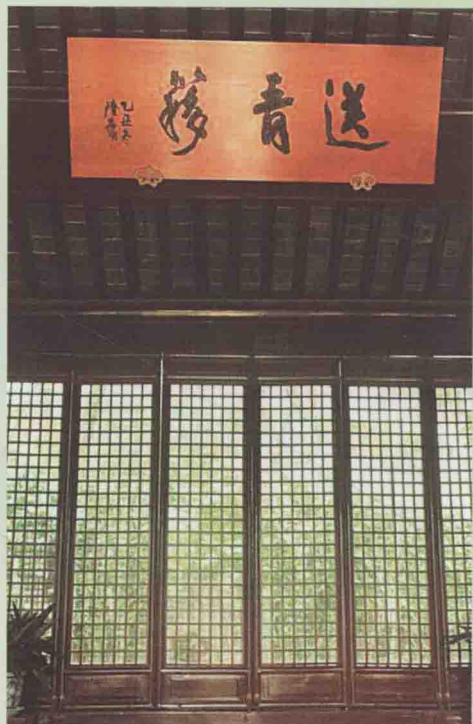 送青簃
乙丑冬